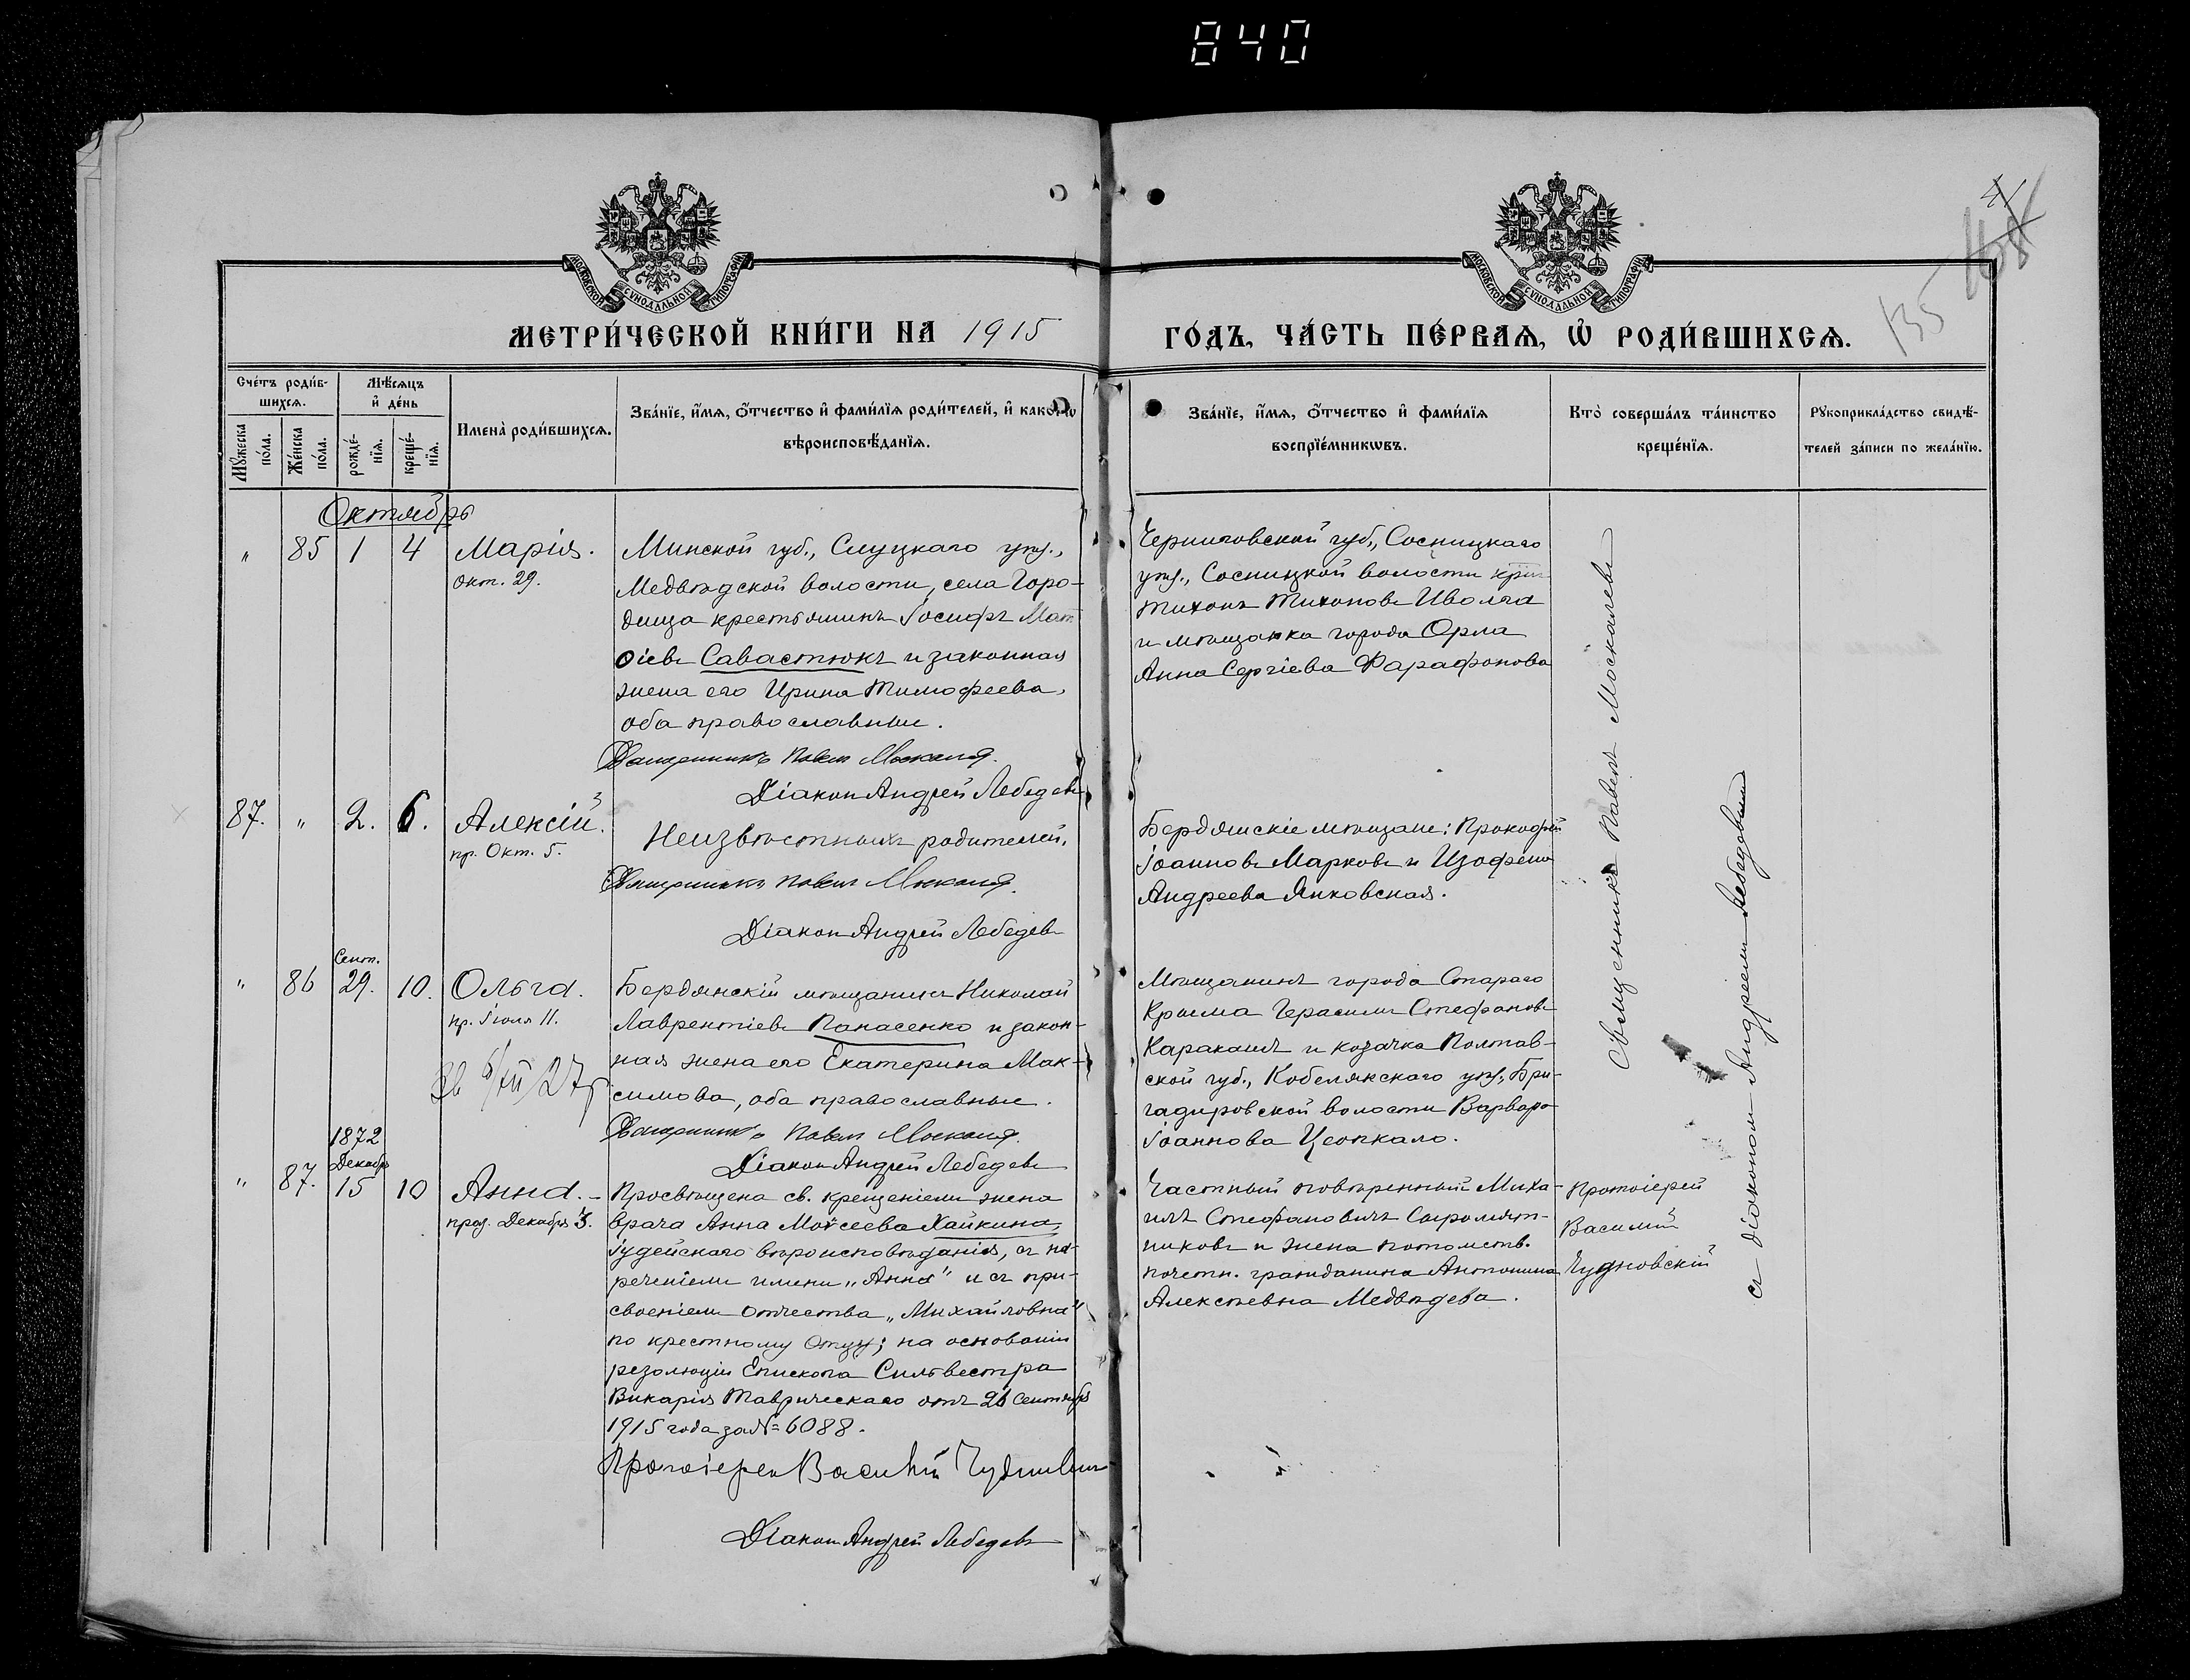 840
41
135
МОСКОВСКОЙ СѴНОДАЛЬНОЙ ТИПОГРАФІИ
МОСКОВСКОЙ СѴНОДАЛЬНОЙ ТИПОГРАФІИ
МЕТРИ́ЧЕСКОЙ КНИ́ГИ НА 1915
ГО́ДЪ, ЧА́СТЬ ПЕ́РВАѦ, Ѡ҆ РОДИ́ВШИХСѦ.
Сче́тъ роди́в-
шихсѧ.
Мꙋ́жеска по́ла.
Же́нска по́ла.
Мѣ́сѧцъ
и҆ де́нь
рожде́-
нїѧ.
креще́-
нїѧ.
Имена̀ роди́вшихсѧ.
Зва́нїе, и҆́мѧ, ѻ҆́тчество и҆ фами́лїѧ роди́телей, и҆ како́гѡ
вѣроисповѣ́данїѧ.
Зва́нїе, и҆́мѧ, ѻ҆́тчество и҆ фами́лїѧ
воспрїе́мникѡвъ.
Кто̀ соверша́лъ та́инство
креще́нїѧ.
Рꙋкоприкла́дство свидѣ́-
телей за́писи по жела́нїю.
Октябрь
" 85 1 4 Марія.
Окт. 29.
Минской губ., Слуцкаго уѣз.,
Медвѣдской волости, села Горо-
дища крестьянинъ Іосифъ Мат-
ѳіевъ Савастюкъ и законная
жена его Ирина Тимофеева,
оба православные.
Священникъ Павелъ Москалев
Діаконъ Андрей Лебедевъ
Черниговской губ., Сосницкаго
уѣз., Сосницкой волости крт.
Тихонъ Тихоновъ Иволга
и мѣщанка города Орла
Анна Сергіева Фарафонова
87. " 2. 6. Алексій.
пр. Окт. 5.
Неизвѣстныхъ родителей.
Священникъ Павелъ Москалев
Діаконъ Андрей Лебедевъ
Бердянскіе мѣщане: Прокофій
Іоанновъ Марковъ и
Андреева Янковская.
" 86 Сент. 29. 10. Ольга.
пр. Іюля 11.
Бердянскій мѣщанинъ Николай
Лаврентіевъ Панасенко и закон-
ная жена его Екатерина Мак-
симова, оба православные.
Священникъ Павелъ Москалев
Діаконъ Андрей Лебедевъ
Мѣщанинъ города Стараго
Крыма Герасимъ Стефановъ
Каракашъ и козачка Полтав-
ской губ., Кобелякскаго уѣз., Бри-
гадировской волости Варвара
Іоаннова Цеопкало.
Священникъ Павелъ Москалевъ
съ діакономъ Андреемъ Лебедевымъ
" 87. 1872 Декабрь 15 10 Анна.
праз. Декабря 3.
Просвѣщена св. крещеніемъ жена
врача Анна Моѵсеева Хайкина,
іудейскаго вѣроисповѣданія, съ на-
реченіемъ имени „Анна" и съ при-
своеніемъ отчества „Михайловна"
по крестному Отцу; на основаніи
резолюціи Епископа Сильвестра
Викарія Таврическаго отъ 21 Сентября
1915 года за № 6088.
Протоіерей Василій Чудновскій
Діаконъ Андрей Лебедевъ
Частный повѣренный Миха-
илъ Стефановичъ Сыромят-
никовъ и жена потомств.
почетн. гражданина Антонина
Алексѣевна Медвѣдева.
Протоіерей
Василій
Чудновскій